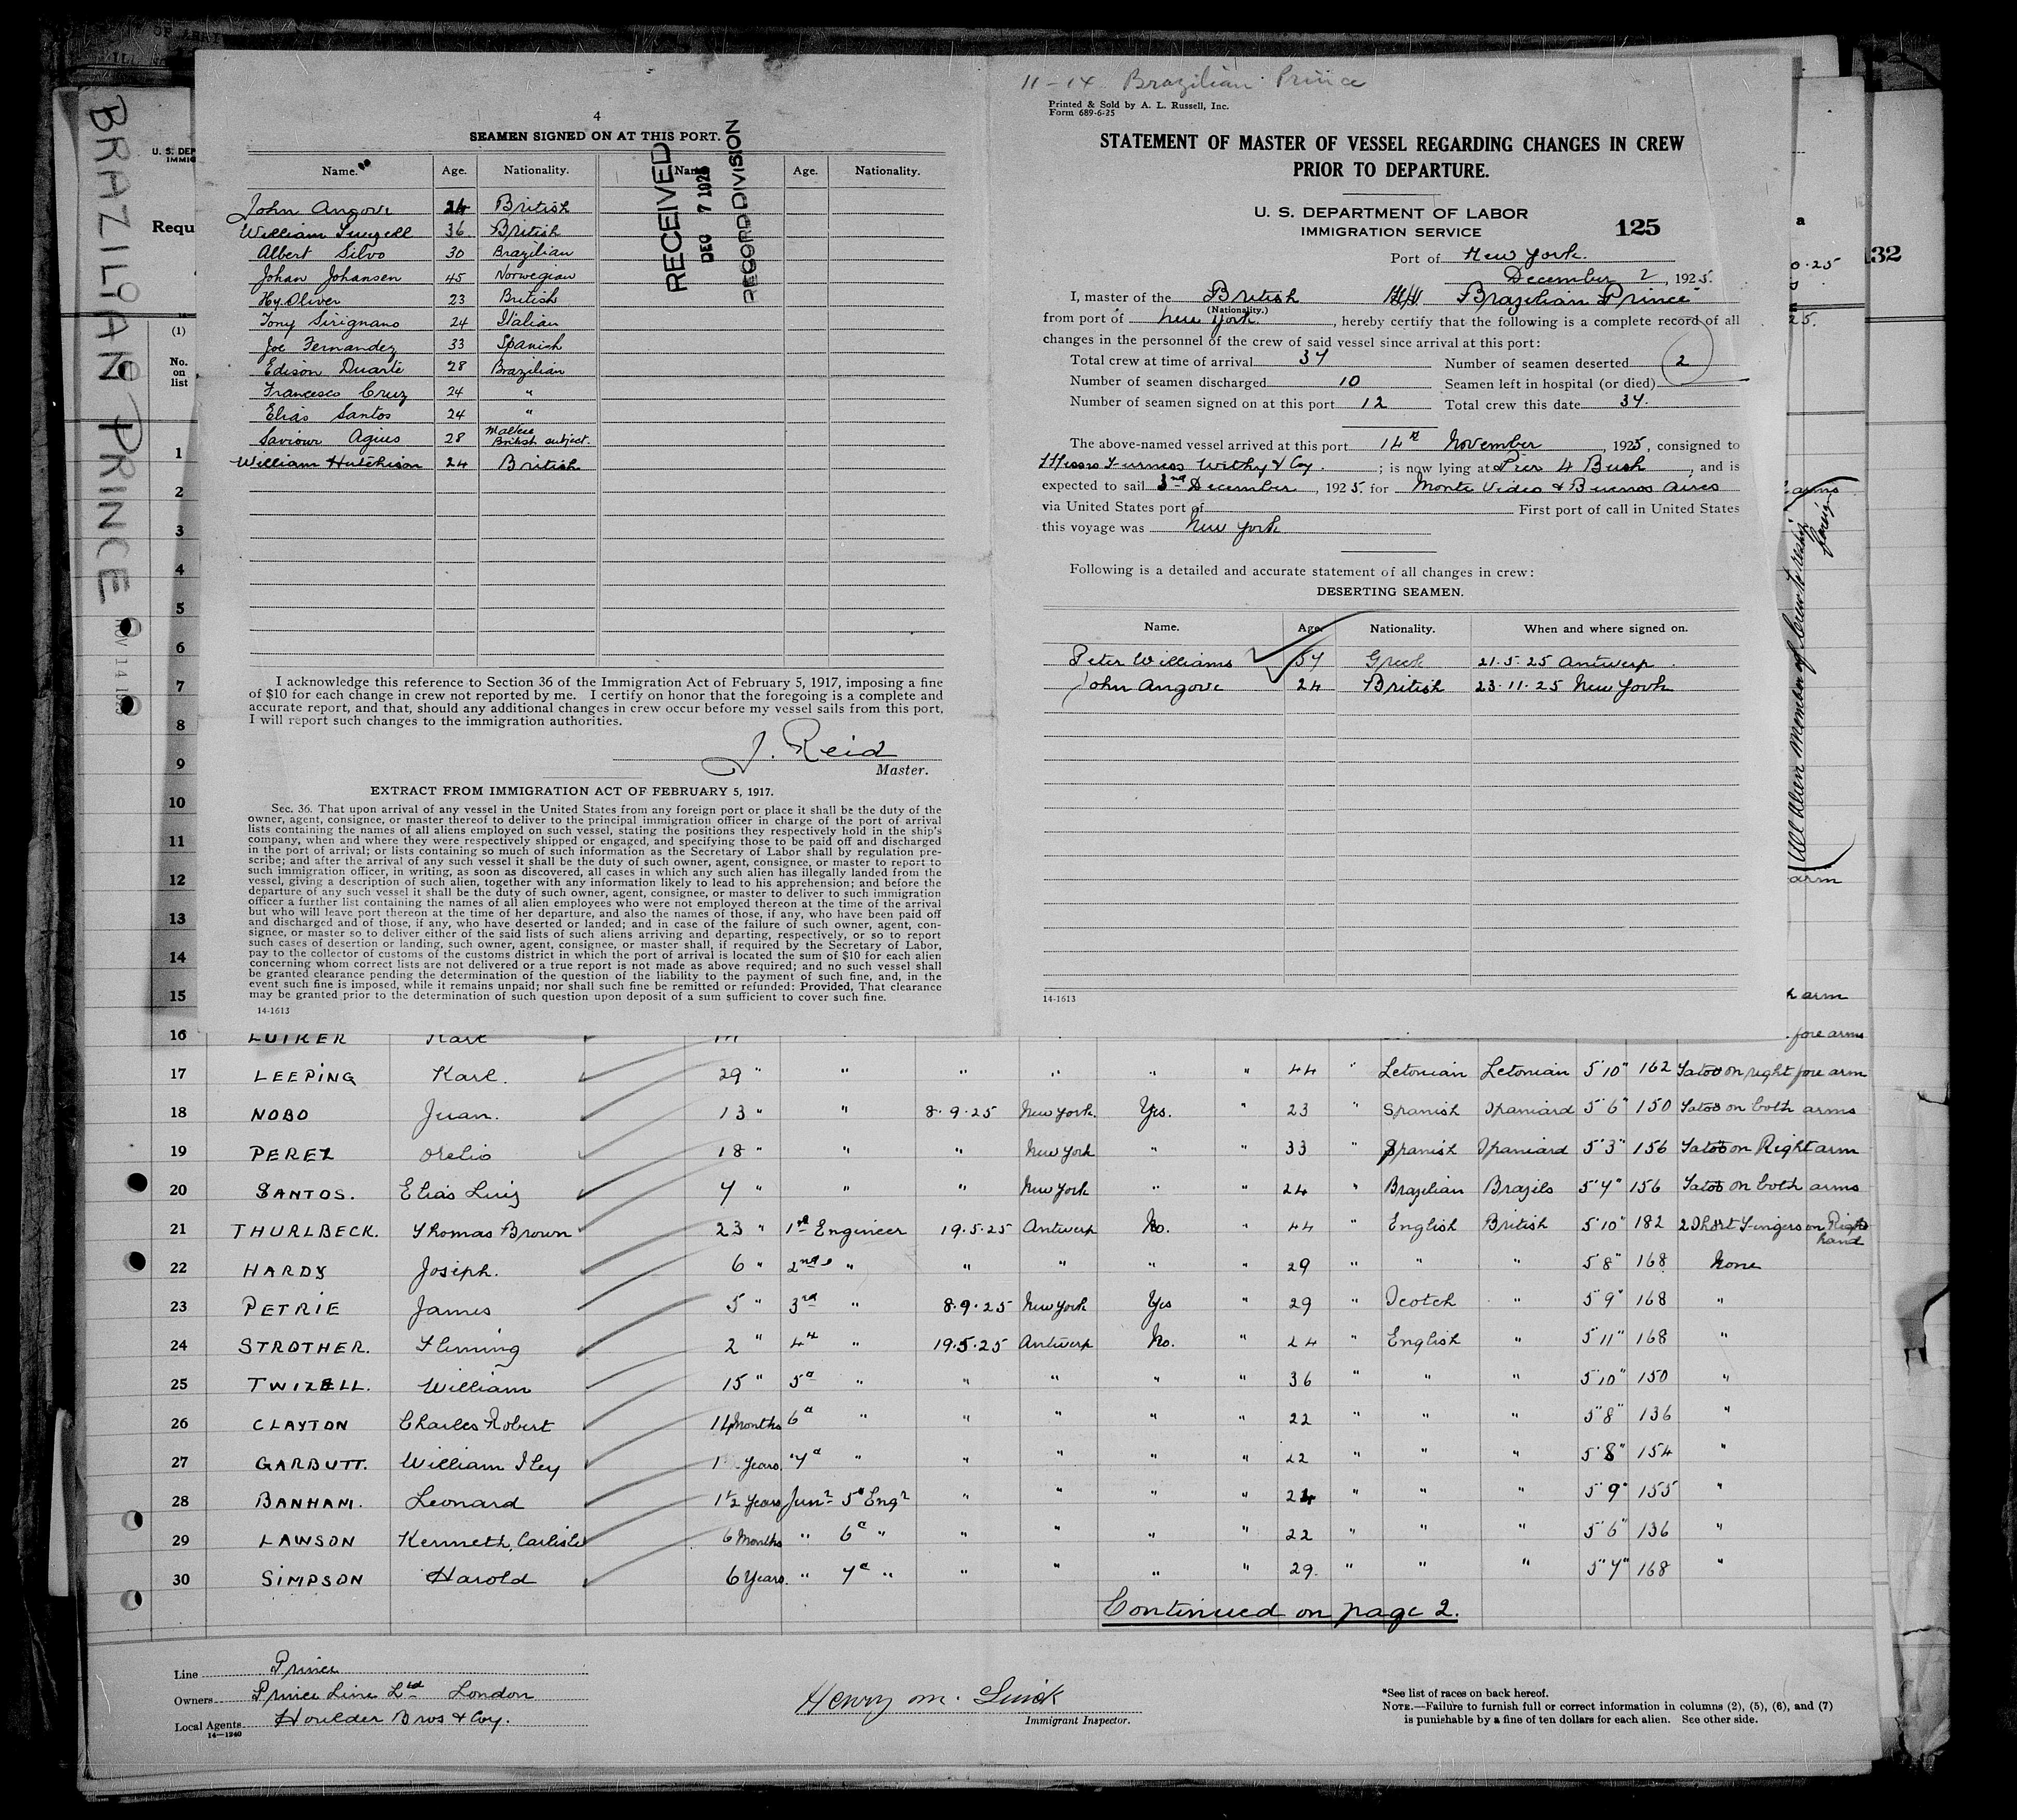 BRAZILIAN PRINCE
NOV 14
4
SEAMEN SIGNED ON AT THIS PORT.
Name. Age. Nationality. Name. Age. Nationality.
RECEIVED
DEC 7 1925
RECORD DIVISION
John Angove 24 British
William Twizell 36 British
Albert Silvo 30 Brazilian
Johan Johansen 45 Norwegian
Hy. Oliver 23 British
Tony Sirignano 24 Italian
Joe Fernandez 33 Spanish
Edison Duarte 28 Brazilian
Francesco Cruz 24 "
Elias Santos 24 "
Saviour Agius 28 Maltese British subject.
William Hutchison 24 British
I acknowledge this reference to Section 36 of the Immigration Act of February 5, 1917, imposing a fine
of $10 for each change in crew not reported by me. I certify on honor that the foregoing is a complete and
accurate report, and that, should any additional changes in crew occur before my vessel sails from this port,
I will report such changes to the immigration authorities.
J. Reid
Master.
EXTRACT FROM IMMIGRATION ACT OF FEBRUARY 5, 1917.
Sec. 36. That upon arrival of any vessel in the United States from any foreign port or place it shall be the duty of the
owner, agent, consignee, or master thereof to deliver to the principal immigration officer in charge of the port of arrival
lists containing the names of all aliens employed on such vessel, stating the positions they respectively hold in the ship's
company, when and where they were respectively shipped or engaged, and specifying those to be paid off and discharged
in the port of arrival; or lists containing so much of such information as the Secretary of Labor shall by regulation pre-
scribe; and after the arrival of any such vessel it shall be the duty of such owner, agent, consignee, or master to report to
such immigration officer, in writing, as soon as discovered, all cases in which any such alien has illegally landed from the
vessel, giving a description of such alien, together with any information likely to lead to his apprehension; and before the
departure of any such vessel it shall be the duty of such owner, agent, consignee, or master to deliver to such immigration
officer a further list containing the names of all alien employees who were not employed thereon at the time of the arrival
but who will leave port thereon at the time of her departure, and also the names of those, if any, who have been paid off
and discharged and of those, if any, who have deserted or landed; and in case of the failure of such owner, agent, con-
signee, or master so to deliver either of the said lists of such aliens arriving and departing, respectively, or so to report
such cases of desertion or landing, such owner, agent, consignee, or master shall, if required by the Secretary of Labor,
pay to the collector of customs of the customs district in which the port of arrival is located the sum of $10 for each alien
concerning whom correct lists are not delivered or a true report is not made as above required; and no such vessel shall
be granted clearance pending the determination of the question of the liability to the payment of such fine, and, in the
event such fine is imposed, while it remains unpaid; nor shall such fine be remitted or refunded: Provided, That clearance
may be granted prior to the determination of such question upon deposit of a sum sufficient to cover such fine.
14-1613
11-14 Brazilian Prince
Printed & Sold by A. L. Russell, Inc.
Form 689-6-25
STATEMENT OF MASTER OF VESSEL REGARDING CHANGES IN CREW
PRIOR TO DEPARTURE.
U. S. DEPARTMENT OF LABOR
IMMIGRATION SERVICE
125
Port of New York.
December 2, 1925.
I, master of the British Brazilian Prince
(Nationality.)
from port of New York., hereby certify that the following is a complete record of all
changes in the personnel of the crew of said vessel since arrival at this port:
Total crew at time of arrival 37 Number of seamen deserted 2
Number of seamen discharged 10 Seamen left in hospital (or died)
Number of seamen signed on at this port 12 Total crew this date 37.
The above-named vessel arrived at this port 14th November, 1925, consigned to
Messrs Furness Withy & Coy.; is now lying at Pier 4 Bush, and is
expected to sail 3rd December, 1925. for Monte Video & Buenos Aires
via United States port of First port of call in United States
this voyage was New York
Following is a detailed and accurate statement of all changes in crew:
DESERTING SEAMEN.
Name. Age. Nationality. When and where signed on.
Peter Williams 57 Greek 21.5.25 Antwerp.
John Angove 24 British 23.11.25 New York
14-1613
U. S. DEP
IMMIG
Requ
(1)
No.
on
list
1
2
3
4
5
6
7
8
9
10
11
12
13
14
15
a
132
25.
arms
arm
arm
16 LUIKER Karl fore arms
17 LEEPING Karl. 29 " " " " " 44 " Letonian Letonian 5'10" 162 Tatoo on right fore arm
18 NOBO Juan. 13 " " 8.9.25 New York. Yes. " 23 " Spanish Spaniard 5'6" 150 Tatoo on both arms
19 PEREZ Orelio 18 " " " New York " " 33 Spanish Spaniard 5'3" 156 Tatoo on Right arm
20 SANTOS. Elias Luiz 7 " " " New York " " 24 " Brazilian Brazils 5'7" 156 Tatoo on both arms
21 THURLBECK. Thomas Brown 23 " 1st Engineer 19.5.25 Antwerp No. " 44 " English British 5'10" 182 2 Short Fingers on Right hand
22 HARDY Joseph. 6 " 2nd " " " " " 29 " " " 5'8" 168 None
23 PETRIE James 5 " 3rd " 8.9.25 New York Yes " 29 " Scotch " 5'9" 168 "
24 STROTHER. Fleming 2 " 4th " 19.5.25 Antwerp No. " 24 " English " 5'11" 168 "
25 TWIZELL. William 15 " 5th " " " " " 36 " " " 5'10" 150 "
26 CLAYTON Charles Robert 14 Months 6th " " " " " 22 " " " 5'8" 136 "
27 GARBUTT. William Iley 1 Years 7th " " " " " 22 " " " 5'8" 154 "
28 BANHAM. Leonard 1 1/2 Years Junr 5th Engr " " " " 24 " " " 5'9" 155 "
29 LAWSON Kenneth, Carlisle 6 Months " 6th " " " " " 22 " " " 5'6" 136 "
30 SIMPSON Harold 6 Years. " 7th " " " " " 29. " " " 5'7" 168 "
Continued on page 2.
Line Prince
Owners Prince Line Ltd London
Local Agents Houlder Bros & Coy.
14-1240
Henry M.
Immigrant Inspector.
*See list of races on back hereof.
NOTE.—Failure to furnish full or correct information in columns (2), (5), (6), and (7)
is punishable by a fine of ten dollars for each alien. See other side.